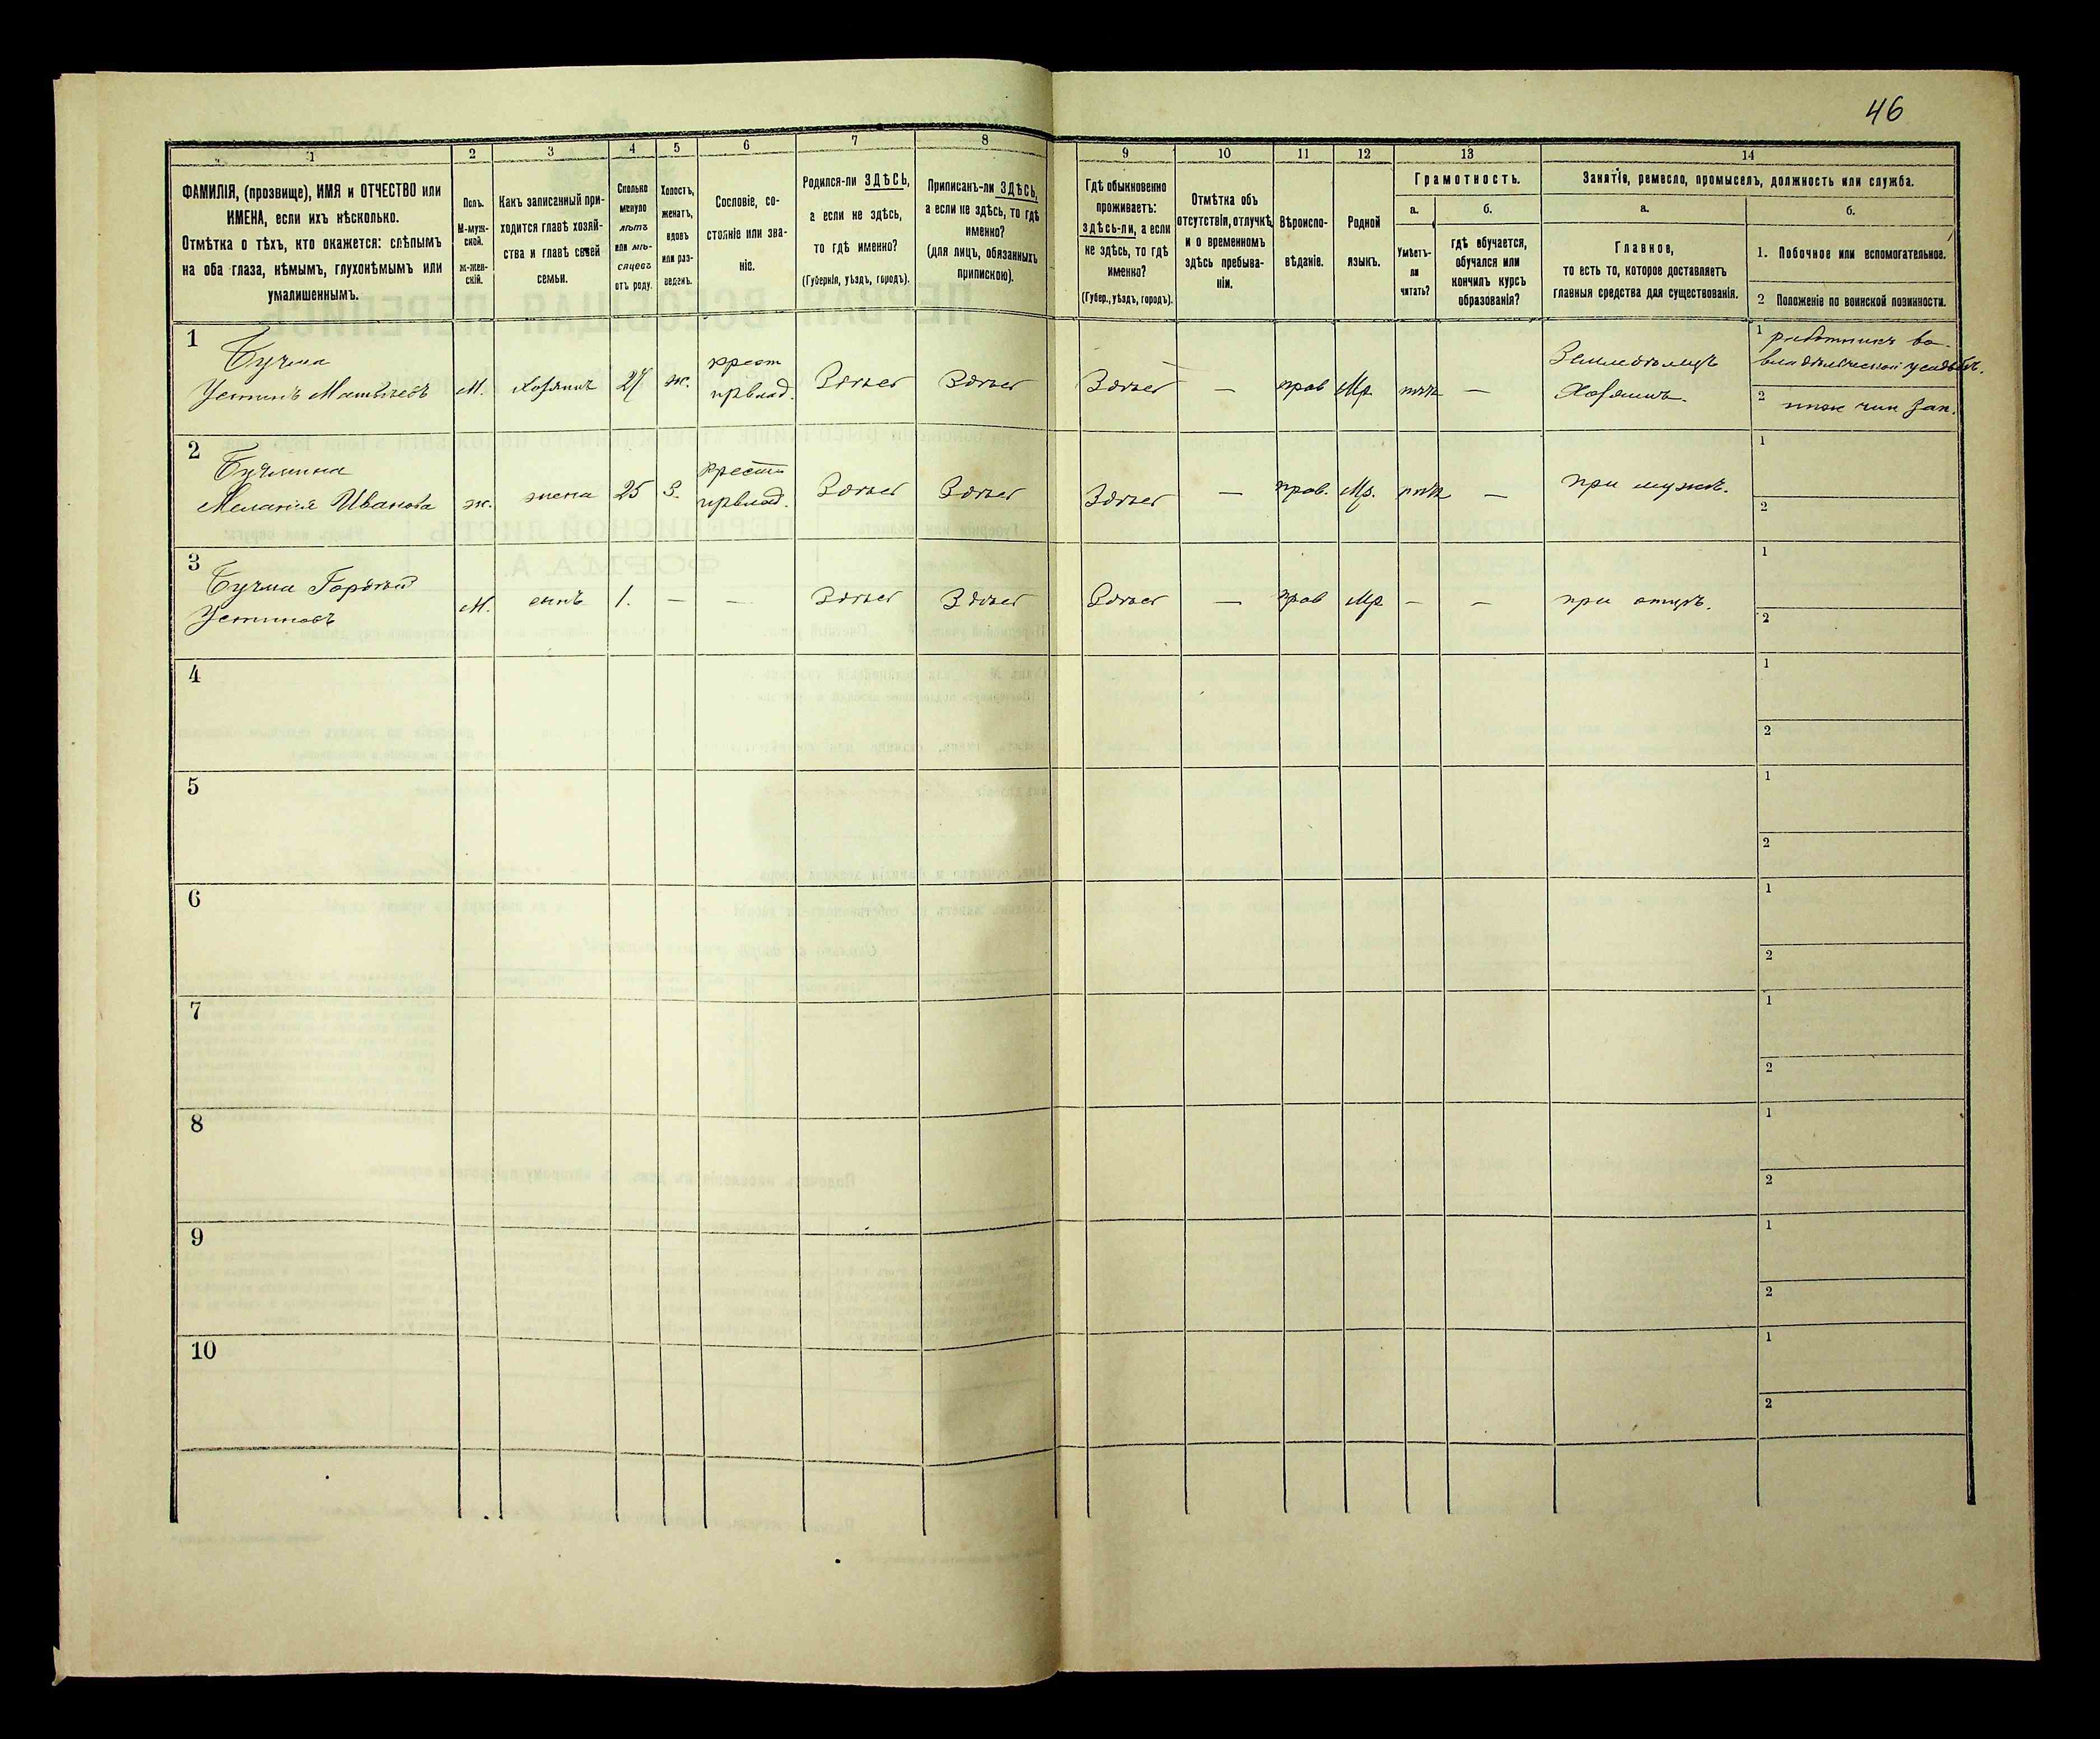 46
1
2
3
4
5
6
7
8
9
10
11
12
13
14
ФАМИЛІЯ, (прозвище), ИМЯ и ОТЧЕСТВО или
ИМЕНА, если ихъ нѣсколько.
Отмѣтка о тѣхъ, кто окажется: слѣпымъ
на оба глаза, нѣмымъ, глухонѣмымъ или
умалишеннымъ.
Полъ.
М-муж-
ской.
ж-жен-
скій.
Какъ записанный при-
ходится главѣ хозяй-
ства и главѣ своей
семьи.
Сколько
минуло
лѣтъ
или мѣ-
сяцевъ
отъ роду.
Холостъ,
женатъ,
вдовъ
или раз-
веденъ.
Сословіе, со-
стояніе или зва-
ніе.
Родился-ли ЗДѢСЬ,
а если не здѣсь,
то гдѣ именно?
(Губернія, уѣздъ, городъ).
Приписанъ-ли ЗДѢСЬ,
а если не здѣсь, то гдѣ
именно?
(для лицъ, обязанныхъ
припискою).
Гдѣ обыкновенно
проживаетъ:
здѣсь-ли, а если
не здѣсь, то гдѣ
именно?
(Губер., уѣздъ, городъ).
Отмѣтка объ
отсутствіи, отлучкѣ,
и о временномъ
здѣсь пребыва-
ніи.
Вѣроиспо-
вѣданіе.
Родной
языкъ.
Грамотность.
а.
Умѣетъ-
ли
читать?
б.
гдѣ обучается,
обучался или
кончилъ курсъ
образованія?
Занятіе, ремесло, промыселъ, должность или служба.
а.
Главное,
то есть то, которое доставляетъ
главныя средства для существованія.
б.
1. Побочное или вспомогательное.
2 Положеніе по воинской повинности.
1
Бучма
Устинъ Матвѣевъ
М.
хозяинъ
27
ж.
крест
ирвлад.
Здѣсь
Здѣсь
Здѣсь
—
прав
Мр
нѣтъ
—
Земледѣлецъ
Хозяинъ.
1 работникъ во
владѣльческой усадьбѣ.
2 ниж чин зап.
2
Бучмина
Меланія Иванова
ж.
жена
25
З.
крестн
ирвлад.
Здѣсь
Здѣсь
Здѣсь
—
прав.
Мр.
нѣтъ
—
при мужѣ.
1
2
3
Бучма Гордѣй
Устиновъ
М.
сынъ
1.
—
—
Здѣсь
Здѣсь
Здѣсь
—
прав
Мр
—
—
при отцѣ.
1
2
4
1
2
5
1
2
6
1
2
7
1
2
8
1
2
9
1
2
10
1
2